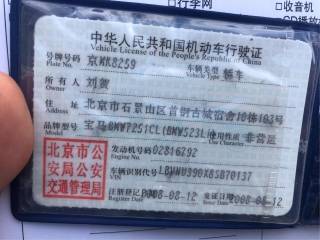 行李网
收音机
中华人民共和国机动车行驶证
Vehicle License of the People's Republic of China
号牌号码 京MK8259 车辆类型 轿车
Plate No. Vehicle Type
所有人 刘贺
Owner
住址 北京市石景山区首钢古城宿舍10栋103号
Address
品牌型号 宝马BMW7251CL(BMW523L 使用性质 非营运
Model
北京市公
安局公安
交通管理局
发动机号码 02816292
Engine No.
车辆识别代号
VIN
注册登记 2008-08-12 2008-08-12